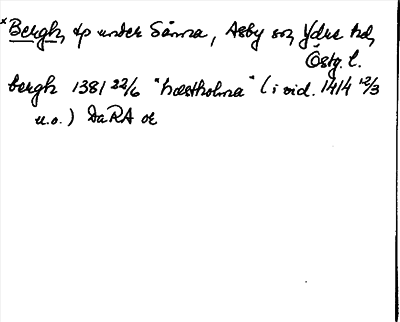 *Bergh, tp under Sänna, Asby sn, Ydre hd,
Östg. l.
bergh 1381 22/6 "hæstholma" (i vid. 1414 12/3
u.o.) DaRA or